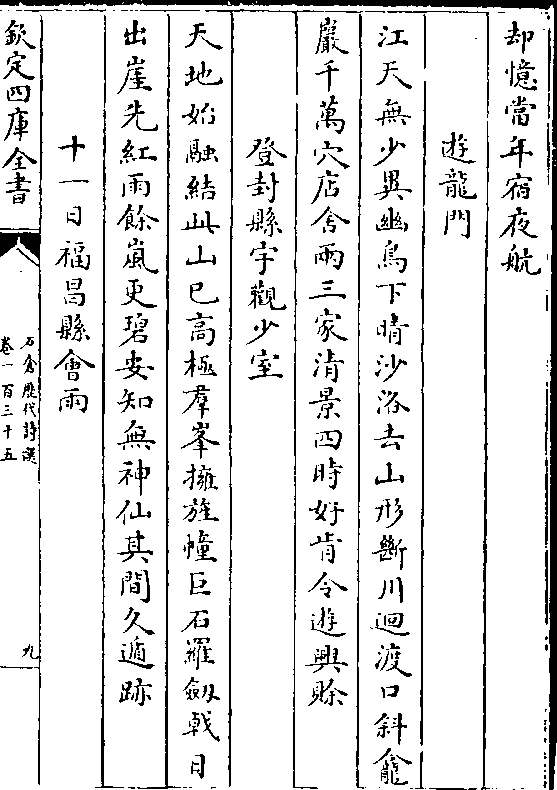 却憶當年宿夜航
遊龍門
江天無少異幽鳥下晴沙洛去山形斷川迴渡口斜龕
巖千萬穴店舍兩三家清景四時好肯令遊興賒
登封縣宇觀少室
天地始融結此山已高極羣峯擁旌幢巨石羅劔戟日
出崖先紅雨餘嵐更碧安知無神仙其間久遁跡
十一日福昌縣會雨
欽定四庫全書
石倉歷代詩選
卷一百三十五
九